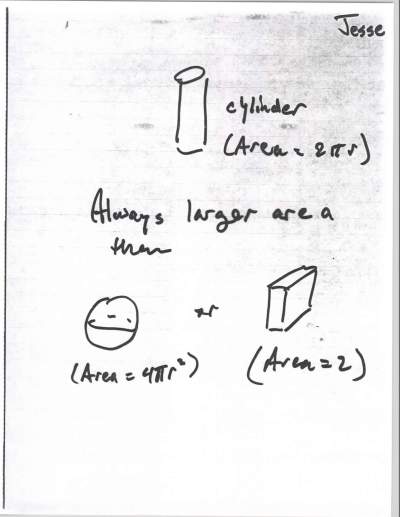 Jesse
cylinder
(Area = 2πr)
Always larger are a
then
or
(Area = 4πr²)
(Area = 2)